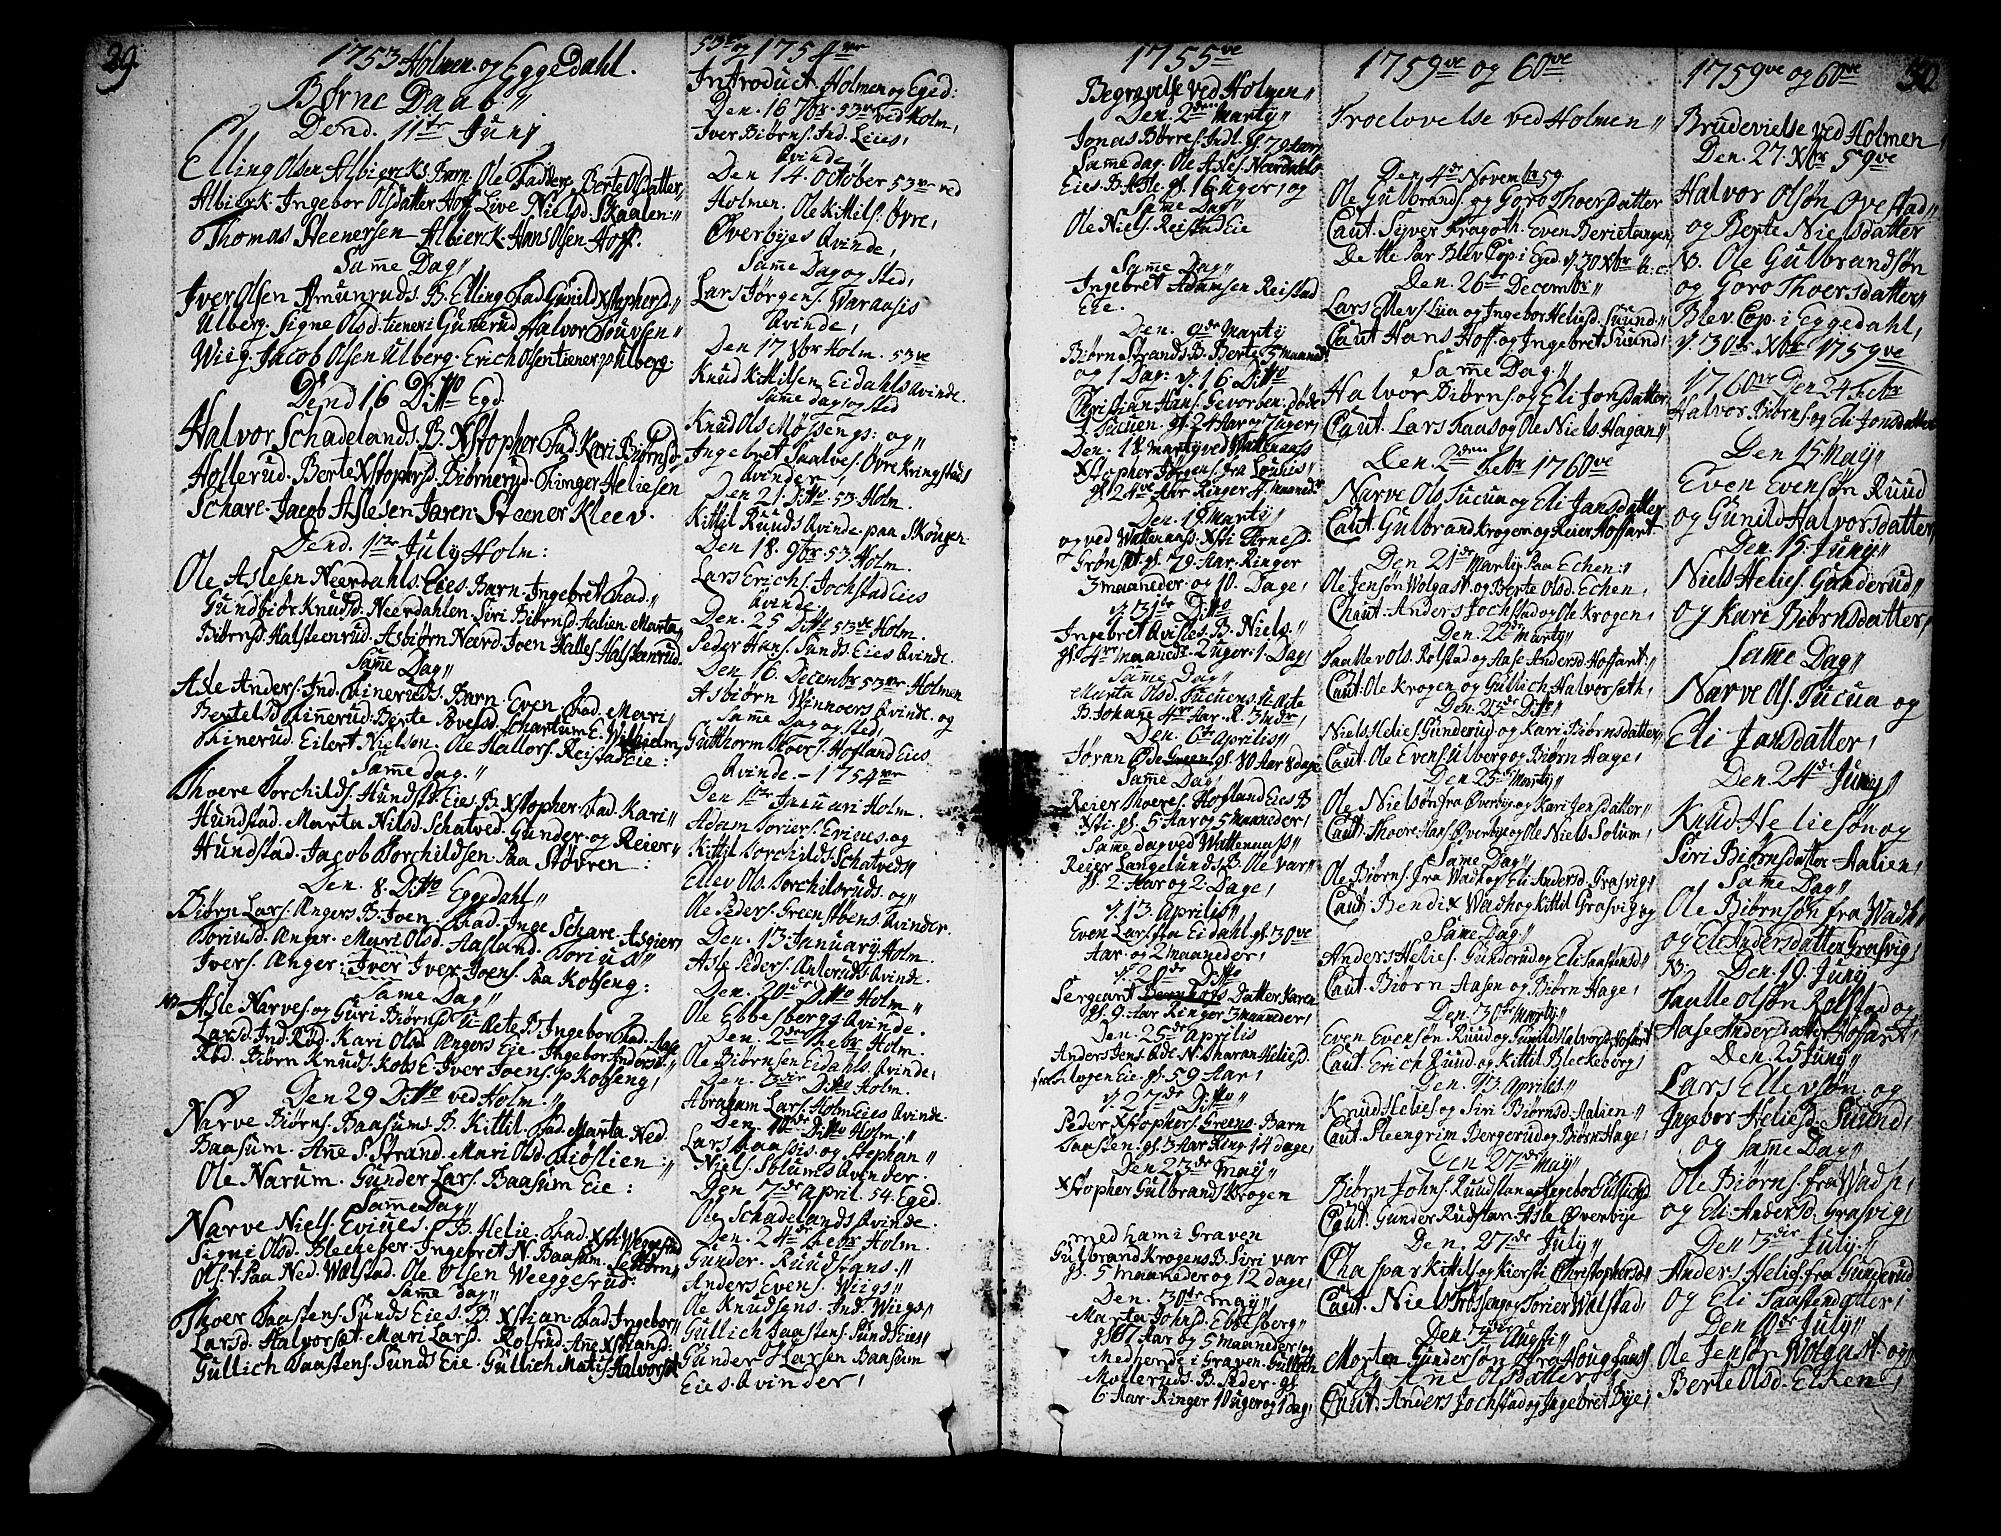 29.
1753 Holmen og Eggedahl.
Børne Daab."
Dend. 11te Junj
Elling Olsen Albiercks Barn Ole Faddere Berte Olsdatter
Albierk. Ingebor Olsdatter Hoff Live Nielsd. Skaalen:"
Thomas Steenersen Albierck. Hans Olsen Hoff.
Same Dag"
Iver Olsen Amunruds B. Elling Fad. Gunild Xstophersd"
Ulberg. Signe Olsd. tieneri Gunerud Halvor
Wiig. Jacob Olsen Ulberg. Erich Olsen tiener p Ulberg.
Dend 16 Ditto Egd
Halvor Schadelands. B. Xstopher Fad. Kari Biørnsd.
Hollerud. Berte Xstophersd. Biørnerud. Helliesen
Schare. Jacob Aslesen Jaren. Steener Kleev.
Dend. 1te July Holm:
Ole Aslesen Neerdahls. Eies Barn. Ingebret Fad."
Gundbiør Knudsd. Neerdahlen. Siri Biørnsd. Aalien. Marta
Biørnsd. Halsteenrud. Asbiørn Neerd. Joen Halles. Halsteenrud.
Same Dag"
Asle Anders. Ind. Finneruds. Barn Even Fad. Mari
Bertelsd. Finnerud. Berte Schartum E. Wilhielm
Finerud. Eilert Nielsen. Ole Hallors. Reistad Eie:
Same dag."
Thoere Torchilds. Hundst. Eies. B. Xstopher. Fad. Kari"
Hundstad. Marta Nilsd. Schatved. Gunder og Reier"
Hundstad. Jacob Torchildsen Paa Støvren:
Den. 8. Ditto Eggedahl"
Biørn Lars. Angers B. Joen Fad. Inge Schare. Asgier
Toriusd. Anger. Mari Olsd. Aasland. Toriu
Ivers. Anger: Iver Iver Joens. Paa Kobseng:
Same Dag"
Asle Narves. og Guri Biørnsd. U-Ækte B. Ingebor Fad. Asle
Larsd. Ind. Rød. Kari Olsd. Angers Eie. Ingebor Andersd."
Rød. Biørn Knuds. Kobs E. Iver Joens. p Kobseng,
Den 29 Ditto ved Holm."
Narve Biørns. Baasums. B. Kittil. Fad. Marta Ned.
Baasum. Ane S. Strand. Mari Olsd. Fiøslien:"
Ole Narum. Gunder Lars. Baasum Eie:
Same Dag"
Narve Niels. Evines. B. Helie. Fad.
Signe Olsd. Bleckeber. Ingebret N. Baasum.
Ols. t. Paa Ned. Wælstad. Ole Olsen Weeggesrud.
Same dag"
Thoer Taastens. Sunds Eies. B. Xstian Fad. Ingebor"
Larsd. Halvorset. Mari Larsd. Rolfsrud. Ane Xst.
Gullich Taastens. Sunds Eie. Gullich Matis. Halvorset

53 og 1754
Introduct. Holmen og Eged:
Den. 16 7br. 53 ved Holm,
Iver Biørns. Ind. Leies,
Qvinde
Den 14. October 53 ved
Holmen. Ole Kittils. Øvre,
Øverbyes Qvinde,
Same Dag og Sted,
Lars Jørgens. Waraasis
Qvinde,
Den 17 Holm. 53
Knud Kittilsen Eidahls Qvinde.
Same dag og Sted
Knud Ols. Møssengs: og"
Ingebret Paalves. Øvre Kringstads
Qvinder,
Den 21. Ditto 53 Holm.
Kittil Ruuds Qvinde paa Skougen
Den 18. 9br. 53 Holm.
Lars Erichs. Jochstad Eies
Qvinde,
Den. 25 Ditto 53 Holm.
Peder Hans. Sunds. Eies Qvinde.
Den 16. Decembr. 53 Holmen
Asbiørn Winnoers Qvinde. og
Same Dag og Sted,
Gutthorm Thoers. Hofland Eies
Qvinde. - 1754
Den 1te Januari Holm.
Adam Toriers. Evines og
Kittil Torchilds. Schatveds"
Ellev Ols. Torchilsruds. og"
Ole Peders. Greenstøens Qvinder.
Den. 13. January Holm.
Asle Peders. Qvinde.
Den. 20de Ditto Holm"
Ole Ebbesbergs. Qvinde.
Den. 2den Febr. Holm.
Ole Biørnsen Eidahls Qvinde,
Den. 3die Ditto Holm.
Abraham Lars. Holm Eies Qvinde
Den. 10de Ditto Holm."
Lars Faassis og Stephan"
Niels. Solums Qvinder.
Den 7de April. 54. Eged.
Ole Schadelands Qvinde.
Den. 24de Febr. Holm.
Gunder Ruudstans."
Anders Evens. Wiigs"
Ole Knudsens. Ind. Wiigs"
Gullich Taastens. Sund Eies"
Gunder Larsen Baasum
Eies. Qvinder,

1755ve
Begravelse ved Holmen"
Den. 2den Marty"
Jonas Børres. Indl. gl. 79 Aar,
Same dag. Ole Asles. Neerdahls
Eies B. Asle gl. 16 uger, og
Same Dag"
Ole Niels. Reistad Eie
Same Dag"
Ingebret Adamsen Reistad
Eie.
Den. 9de Marty
Biørn Strands B. Berte 5 maaned.
og 1 Dag: d. 16. Ditto
Christian Hans. Gevorben. døde
I Tucuen gl. 24 Aar og 7 uger,
Den. 18 Marty ved Wattenaass
Xstopher Jørgens. fra
gl. 24 Aar Ringer 4. maaned.
Den. 19 Marty,
og ved Wattenaass Xsti Arnesd.
Grøn gl. 79. Aar. Ringer
3 maaneder og 10. Dage,
d. 31te Ditto
Ingebret B. Niels."
gl. 4 maaned. 2 uger. 1. Dag,
Same Dag"
Marta Olsd. Tucuens UÆkte
B. Johane 4 Aar. R. 3 mdr,
Den. 6te Aprilis"
Jøran Øde Green. gl. 80 Aar 8 dage
Same Dag,
Reier Thoeres. Hofland Eies B
Xsti gl. 5 Aar og 5 maaneder,
Same dag ved Wattenaass"
Reier Langelunds. B. Ole var"
gl. 2. Aar og 2. Dage,
d. 13. Aprilis"
Even Larssta Eidahl. gl. 30ve
Aar. og 2 maaneder,
d. 20de Ditto
Sergeant Bernhofs Datter Karen
gl. 9. Aar Ringer 3 maander,
Den. 25de Aprilis
Anders Jens. N. Tharan Heliesd.
Eie gl. 59 Aar,
d. 27de Ditto"
Peder Xstophers. Greens. Barn
Taasten. gl. 3 Aar Ring. 14 dage,
Den 23de May"
Xstopher Gulbrands. Krogen
med ham i Graven
Gulbrand Krogens B. Siri var
gl. 5 maaneder og 12 dage,
Den. 30de May"
Marta Johnsd. Ebbesberg"
gl. 67 Aar og 5 maaneder og
Med hende i Graven. Gulleth
Møllerud. B. Peder. gl.
6 Aar. Ringer 10 uger og 1 dag,

1759ve og 60ve
Troelovelse ved Holmen"
Den 4de Novembr. 59
Ole Gulbrands. og Goro Thoersdatter
Caut. Syver Fragoth. Even Berietangen,
Dette Par Blev Cop. i Eged. d. 30 Xbr. h. c:
Den. 26de Decembr."
Lars Ellevs. Lia og Ingebor Heliesd. Suund."
Caut Hans Hoff. og Ingebret Suund,
Same Dag"
Halvor Biørns. og Eli Jonsdatter
Caut. Lars Faas og Ole Niels. Hagan"
Den. 2den Febr. 1760ve
Narve Ols. Tucua og Eli Jansdatter
Caut. Gulbrand Krogen og Reier Hoffart.
Den 21de Marty Paa Echen:"
Ole Jensøn Wolgast og Berte Olsd. Echen,
Chaut. Anders Jochstad og Ole Krogen,
Den. 22de Marty"
Taallev Ols. Rolstad og Aase Andersd. Hoffart:"
Caut. Ole Krogen og Gullich Halvorsath,
Den. 23de Ditto"
Niels Helies. Gunderud og Kari Biørnsdatter,
Caut. Ole Evens. Ulberg og Biørn Hage,
Den 25de Marty"
Ole Nielsøn fra Øverby og Kari Jensdatter,
Caut. Thoere Aas. Øverbye og Ole Niels. Solum,
Same Dag"
Ole Biørns. fra Wadh. og Eli Andersd. Grasvig,
Caut. Bendix Wadh og Kittil Grasvig, og
Same Dag"
Anders Helies. Gunderud og Eli Taastensd"
Caut. Biørn Aasen og Biørn Hage,
Den. 30te Marty"
Even Evensøn Ruud og Gunild Halvorsd. Hofart
Caut. Erich Ruud og Kittil Bleckeberg,
Den. 13 Aprilis."
Knud Helies. og Siri Biørnsd. Aalien."
Caut. Steengrim Bergerud og Biørn Hage,
Den 27de May"
Biørn Johns. Ruudstan og Ingebor Gullichsd.
Caut. Gunder Rudstan. Asle Øverbye
Den. 27de July"
Chaspar Kittils. og Kiersti Christophersd"
Caut. Niels Frøsseng og Torier Walstad,
Den 3die Augsti"
Morten Gundersøn fra Houg Lands
og Ane Olsdatter,
Caut. Anders Jochstad og Ingebret Bye,

1759ve og 60ve
30.
Brudevielse ved Holmen
Den. 27. Xbr 59ve
Halvor Olsøn Ovestad"
og Berte Nielsdatter
N. Ole Gulbrandsøn
og Goro Thoersdatter"
Blev. Cop. i Eggedahl,
d. 30te Xbr 1759ve
1760ve Den 24 Febr
Halvor. Biørns og Eli Jonsdatter
Den 15 May"
Even Evensøn Ruud
og Gunild Halvorsdatter,
Den. 15. Juny"
Niels Helies. Gunderud"
og Kari Biørnsdatter,
Same Dag"
Narve Ols. Tucua og
Eli Jansdatter,
Den. 24de Juny"
Knud Heliesøn og
Siri Biørnsdatter Aalien,
Same Dag"
Ole Biørnsøn fra Wadh,
og Eli Andersdatter Grasvig,
N. Den. 19. Juny
Taalle Olsøn Rolstad og
Aase Andersdatter Hofart,
Den. 25 Juny"
Lars Ellevsøn. og
Ingebor Heliesd. Suund,
og Same Dag"
Ole Biørns. fra Wadh,
og Eli Andersd. Grasvig,
Den 3die July."
Anders Helies. fra Gunderud
og Eli Taastendatter,
Den 10de July"
Ole Jensøn Wolgast og
Berte Olsd. Echen,